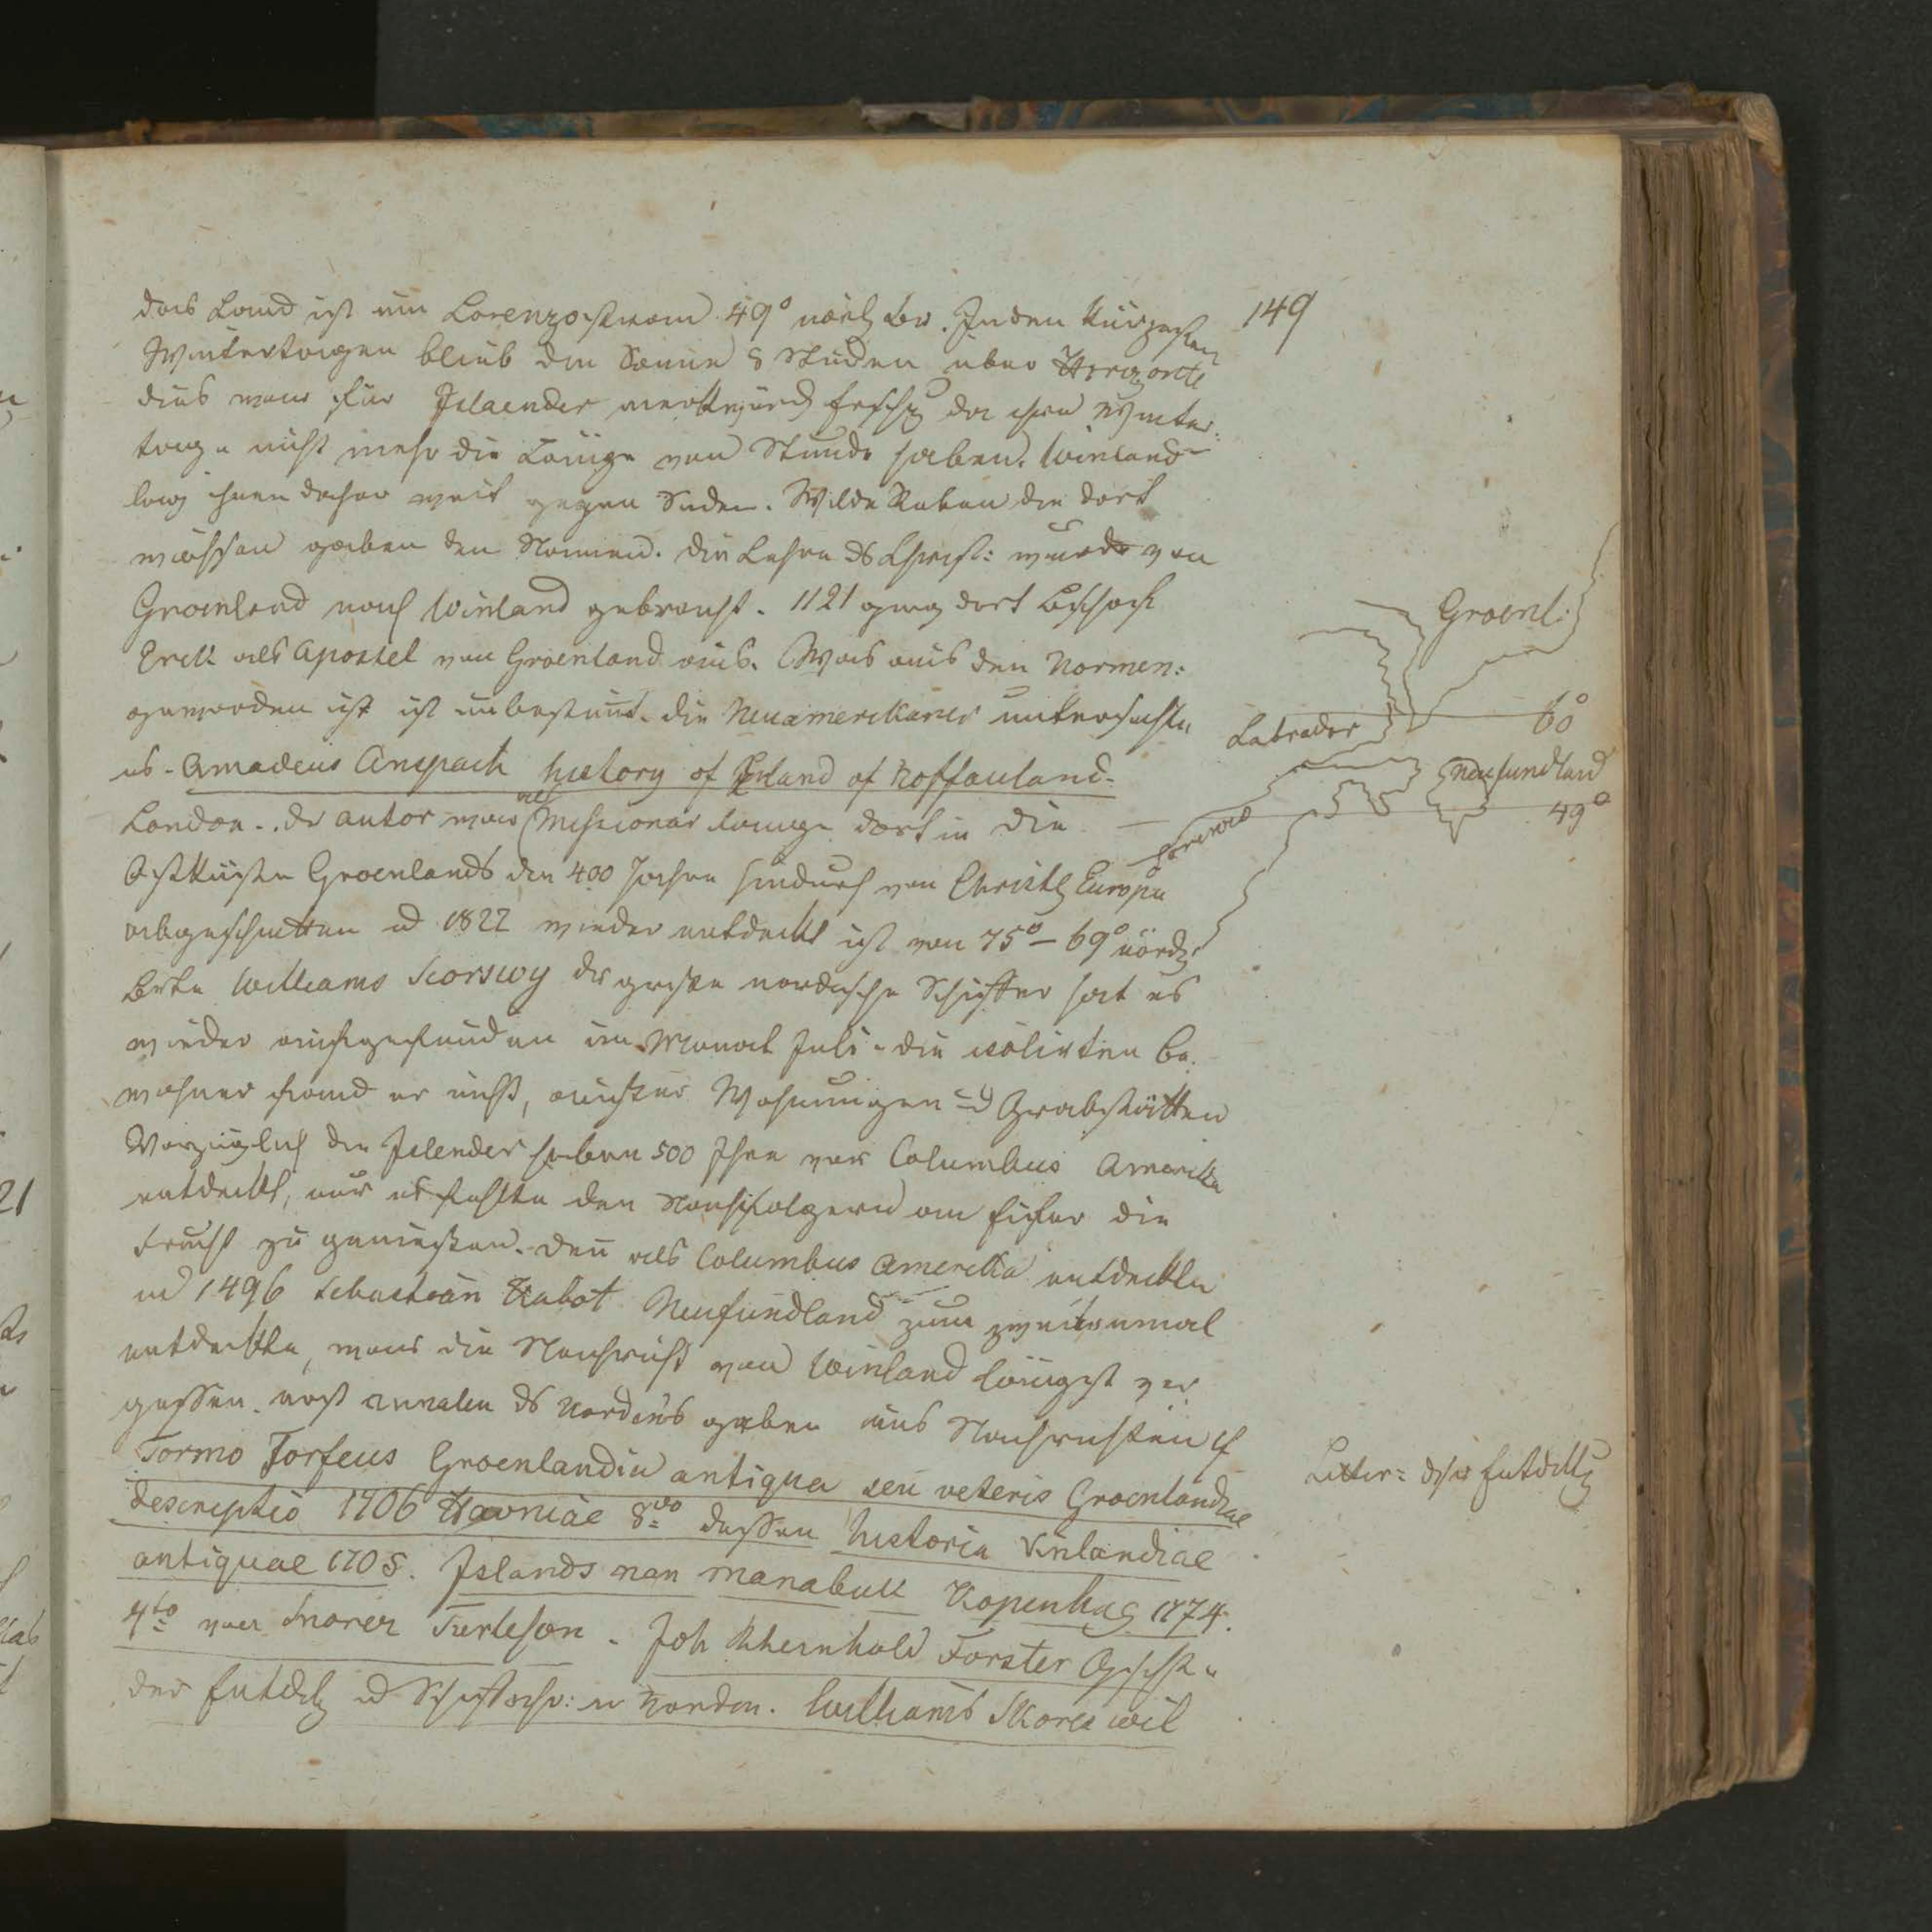 149
das Land ist am Lorenzostrom 49° nördl Br. In den kürzesten
Wintertagen blieb die Sonne 8 Stunden über Horizonte
dies war für Jslaender merkwürd da ihre Winter-
tage nicht mehr die Länge von Stunde haben. Winland
lag ihnen daher weit gegen Süden. Wilde Reben die dort
wachsen gaben den Namen. die Lehre ds Christ: wurde von
Groenland nach Winland gebracht. 1121 ging dort Bischoff
Erik als Apostel von Groenland aus. Was aus den Normen:
geworden ist ist unbestimt. die Neuamerikaner untersuchten
es. Amadeus Anspach history of Inland of Noffauland.
London. dr autor war als Missionar lange dort in die
Ostküste Groenlands die 400 Jahre hindurch von Christl Europa
abgeschnitten u 1822 wieder entdeckt ist von 75°-69° nördl
Brte Williams Scorswy der große nordische Schiffer hat es
wieder aufgefunden im Monat Juli. die isolirten Be-
wohner fand er nicht, aussser Wohnungen u Grabstätten
Vorzüglich die Jslender haben 500 Jhre vor Columbus Amerika
entdeckt, nur es fehlte den Nachfolgern am Eifer die
Frucht zu geniessen. den als Columbus Amerika entdeckte
u 1496 Sebastian Kabot Neufundland zum zweitenmal
entdeckte, war die Nachricht von Winland längst ver
gessen. erst annalen ds Nordens gaben uns Nachrichten cf
Tormo Torfeus Groenlandia antiqua seu veteris Groenlandiae
descriptio 1706 Havniae 8vo dessen historia Vinlandiae
antiquae 1705. Jslands nan manabuk Kopenhag 1774.
4to von Snorer Turleson. Joh Rheinhold Forster Geschte
der Entdck u Schiffahr: in Norden. Williams Skores wil
Groenl:
60°
Labrador
Neufundland
49°
Lorenzo
Litter: dser Entdkg